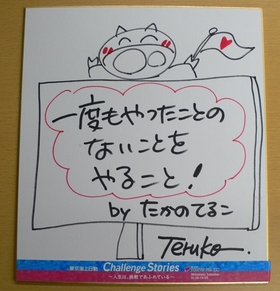 一度もやったことの
ないことを
やること!
by たかのてるこ
Teruko
東京海上日動 Challenge Stories
～人生は、挑戦であふれている～